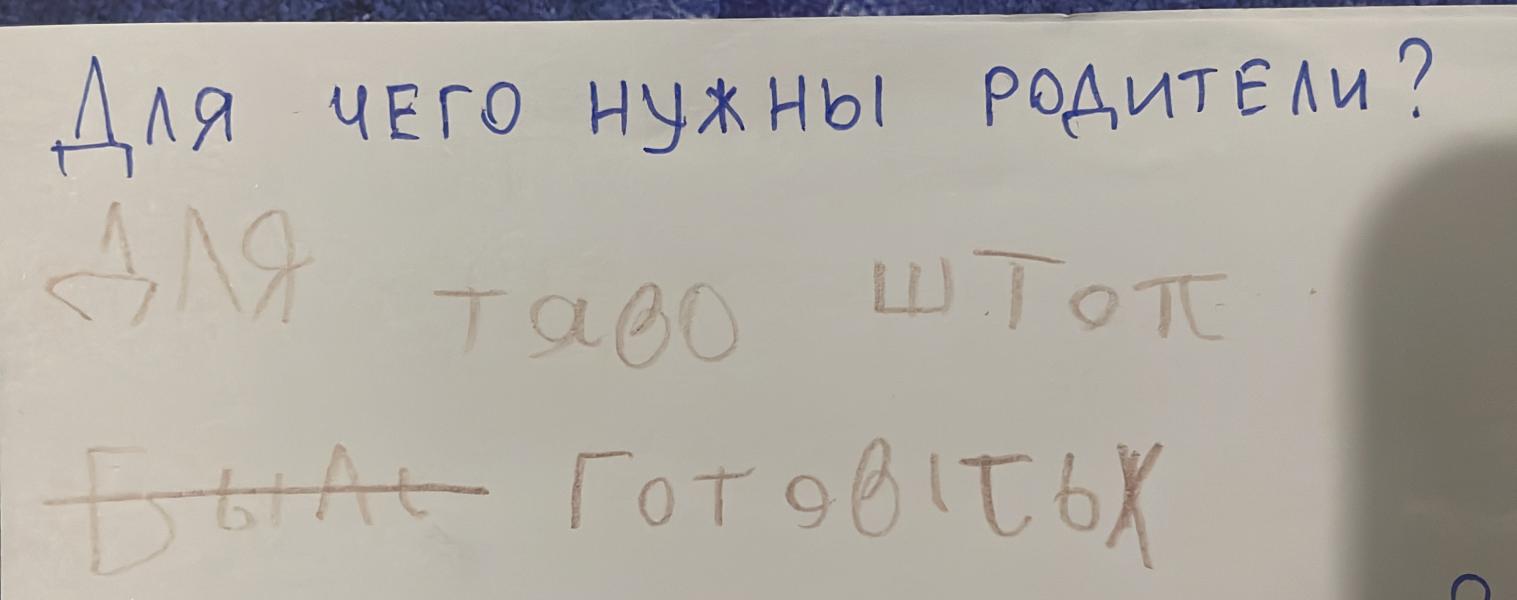 Для чего нужны родители?
Для таво штоп
готовить